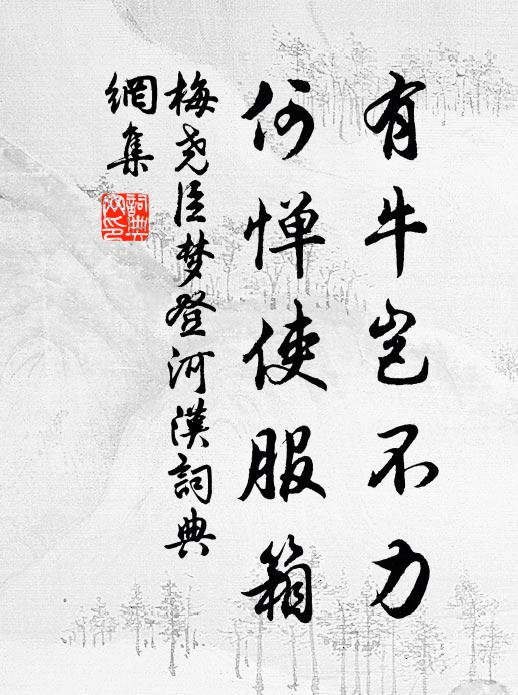 有牛岂不力
何惮使服箱
梅尧臣梦登河汉詞典
網集
詞典
网印